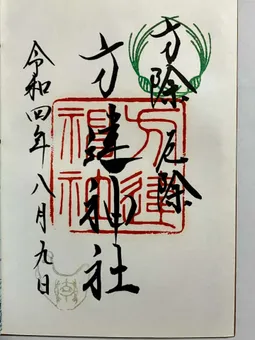 方除 厄除
方違神社
令和四年八月九日
方違